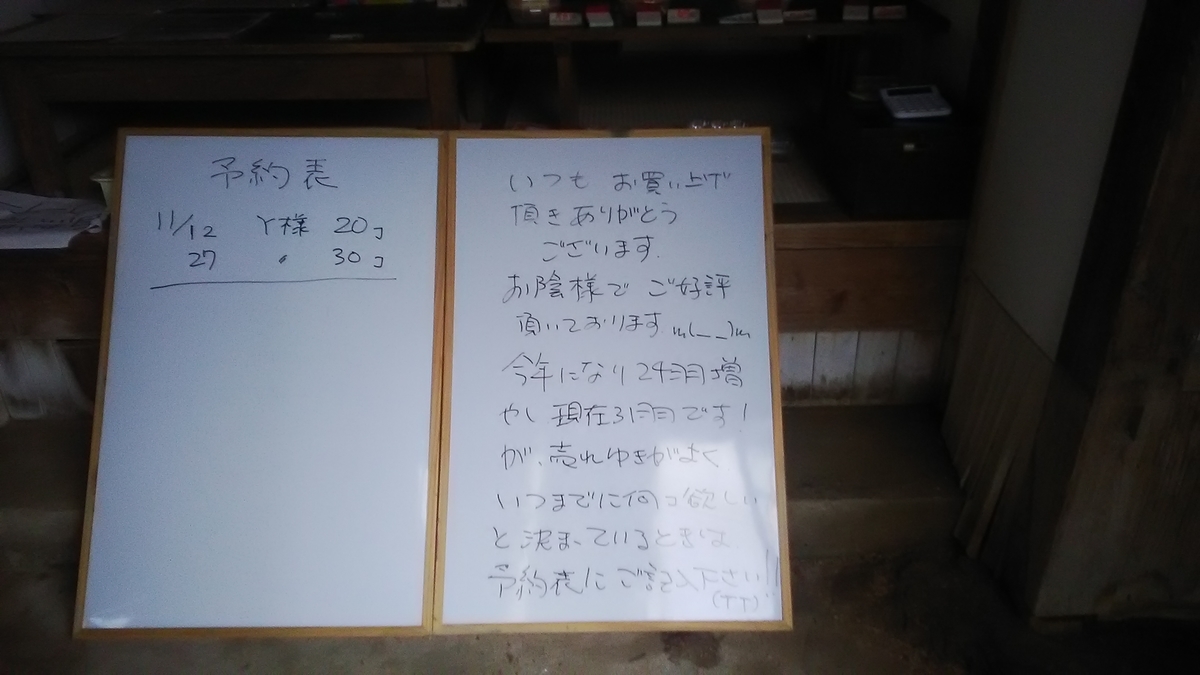 予約表
11/12 Y様 20コ
27 〃 30コ
いつも お買い上げ
頂きありがとう
ございます.
お陰様で ご好評
頂いております m(_ _)m
今年になり24羽増
やし 現在31羽です!
が、売れゆきがよく
いつまでに何コ欲しい
と決まっているときは
予約表に ご記入下さい!!
(TT)